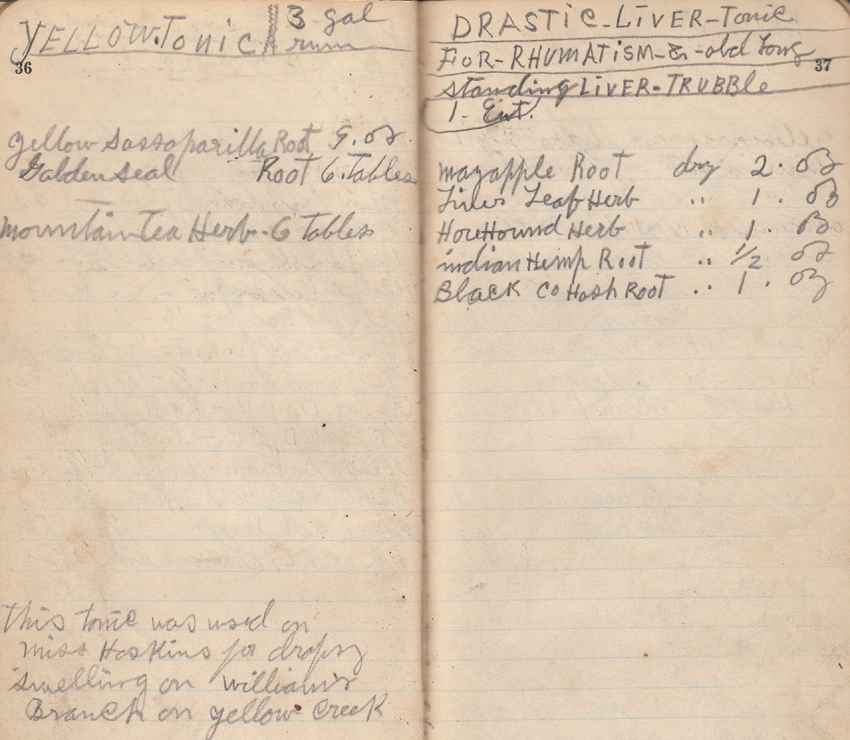 YELLOW. Tonic 3 gal
rum
36
yellow Sassaparilla Root 9. oz
Golden Seal Root 6. Tables
mountain Tea Herb - 6 Tables
This tonic was used on
miss Hoskins for dropsy
swelling on williams
Branch on yellow Creek
DRASTIC - LIVER - Tonic
FOR - RHUMATISM - & - old long
37
standing LIVER - TRUBBLe
1 -
mayapple Root dry 2. oz
Leaf Herb " 1. oz
HoreHound Herb " 1. oz
indian Hemp Root " 1/2 oz
BLack CoHosh Root " 1. oz